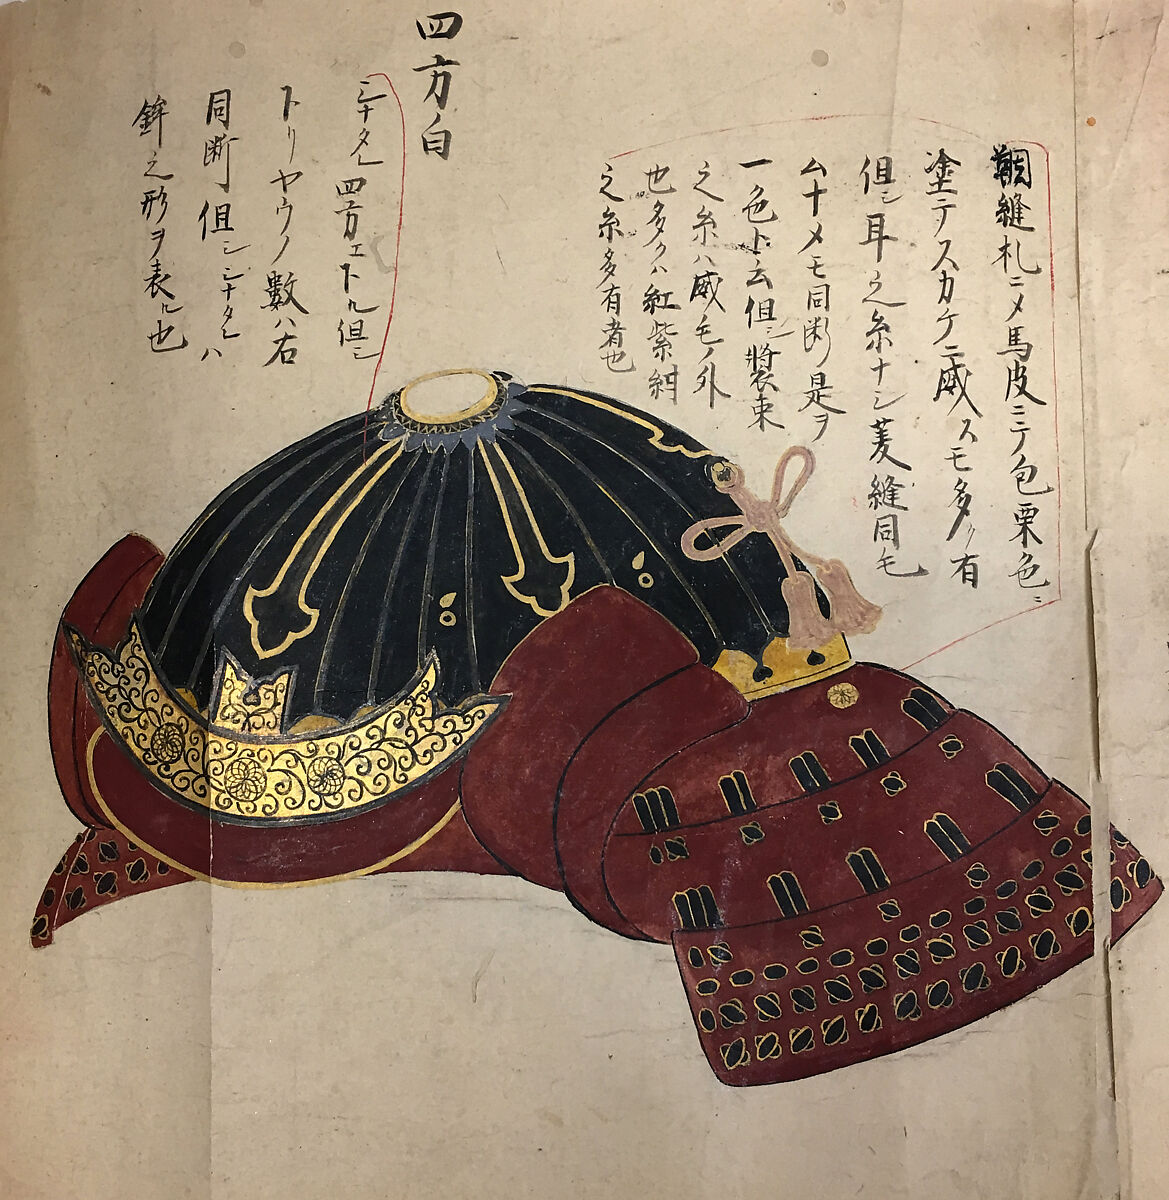 四方白
シナタレ四方エ下ル但シ
トリヤウノ數ハ右
同断但シシナタレハ
鉾之形ヲ表ル也
縫札ニメ馬皮ニテ包栗色ニ
塗テスカケニ威スモ多ク有
但シ耳之糸ナシ菱縫同毛
ムナメモ同断是ヲ
一色ト云但シ裝束
之糸ハ威毛ノ外
也多クハ紅紫紺
之糸多有者也